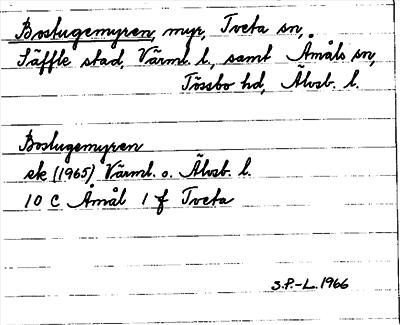 Bostugemyren, myr, Tveta sn,
Säffle stad, Värml. l., samt Åmåls sn,
Tössbo hd, Älvsb. l.
Bostugemyren
ek (1965) Värml. o. Älvsb. l.
10 C Åmål 1 f Tveta
S.P.-L. 1966